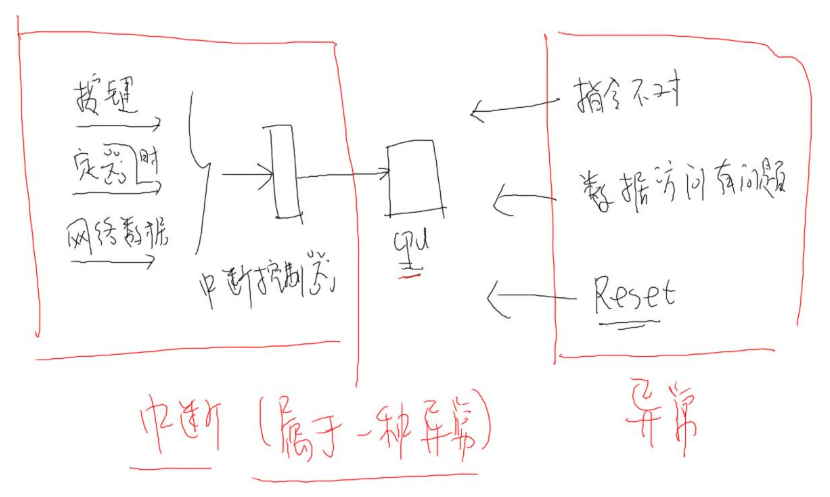 按键
定时器
网络数据
中断控制器
CPU
指令不对
数据访问有问题
Reset
中断 (属于一种异常)
异常